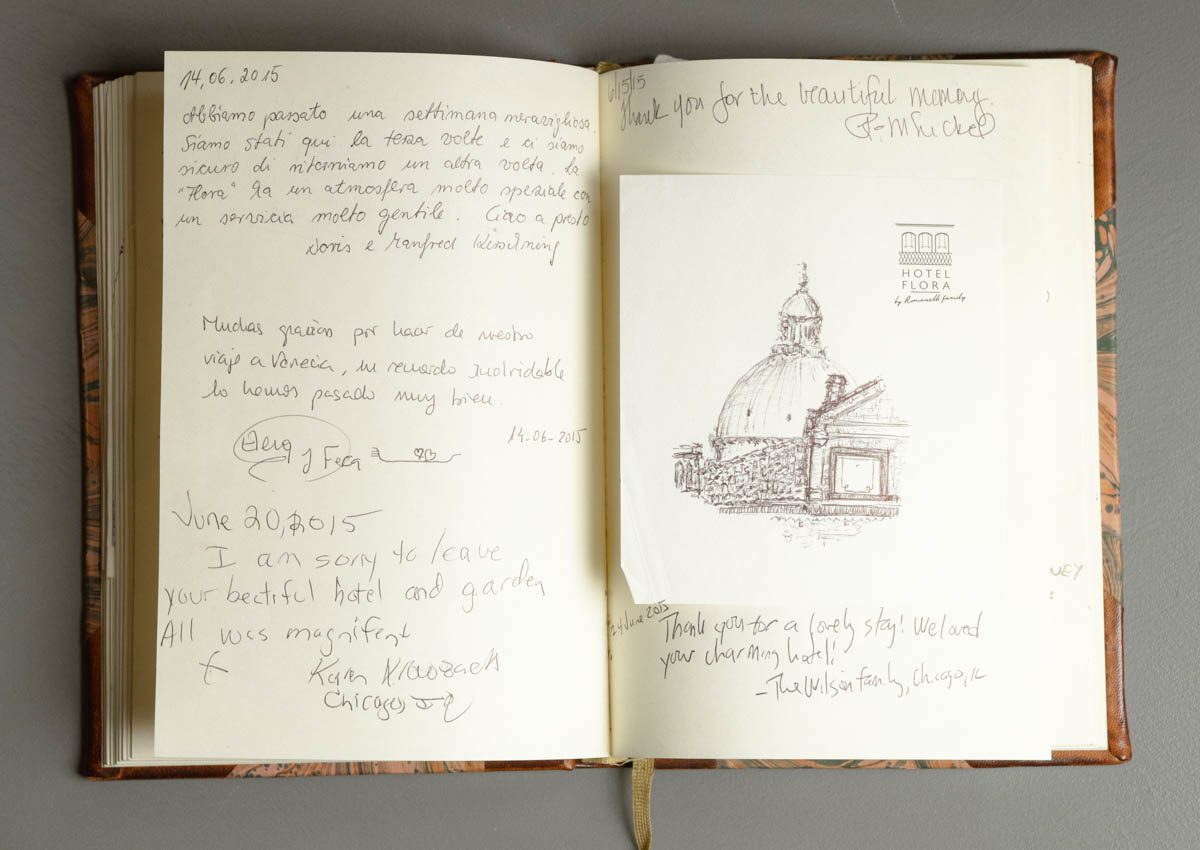 14,06.2015
Abbiamo passato una settimana meravigliosa.
Siamo stati qui la terza volte e ci siamo
sicuro di ritorniamo un altra volta. La
"Flora" ha un atmosfera molto speziale con
un servicia molto gentile. Ciao a presto
Doris e Manfred
Muchas gracias por hacer de nuestro
viaje a Venecia, un recuerdo inolvidable
lo hemos pasado muy bien.
14-06-2015
y
June 20, 2015
I am sorry to leave
your beatiful hotel and garden
All was magnifent
Karen
Chicago,
6/15/15
Thank you for the beautiful memory.
HOTEL
FLORA
by Romanelli family
NEY
24 June 2015
Thank you for a lovely stay! We loved
your charming hotel!
- The Wilson Family, Chicago, IL